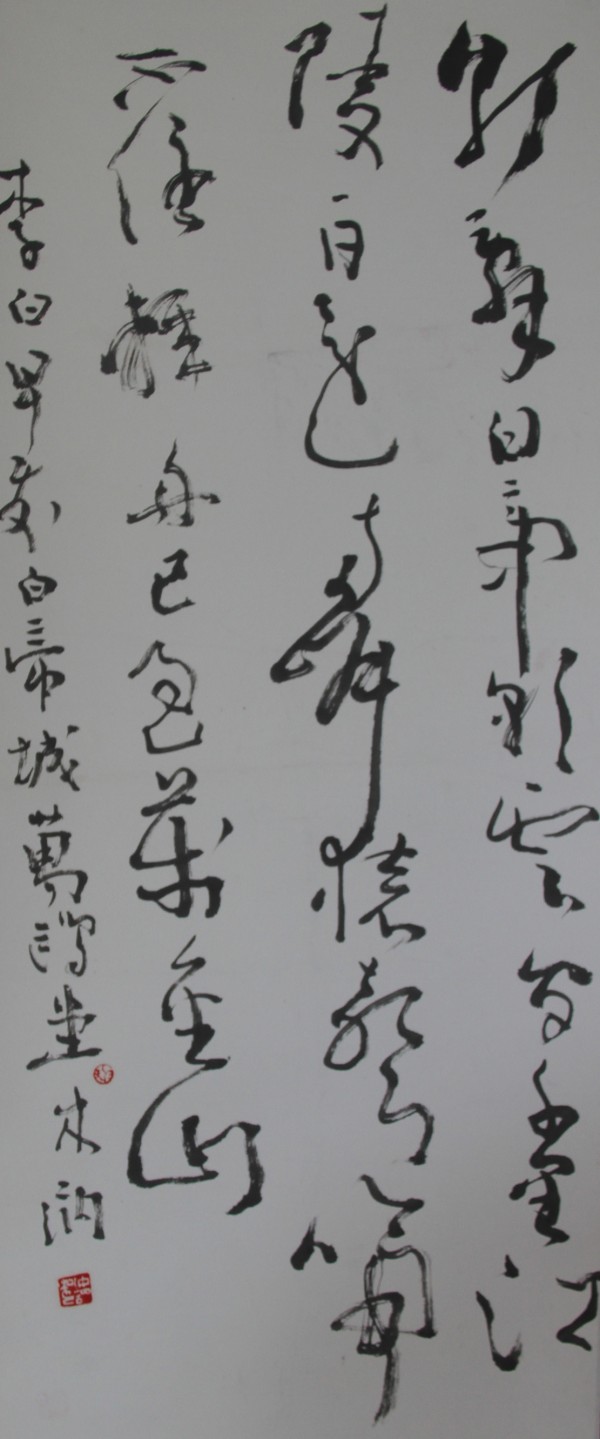 朝辭白帝彩雲間千里江
陵一日還两岸猿聲啼
不住輕舟已過萬重山
李白早发白帝城萬堂木